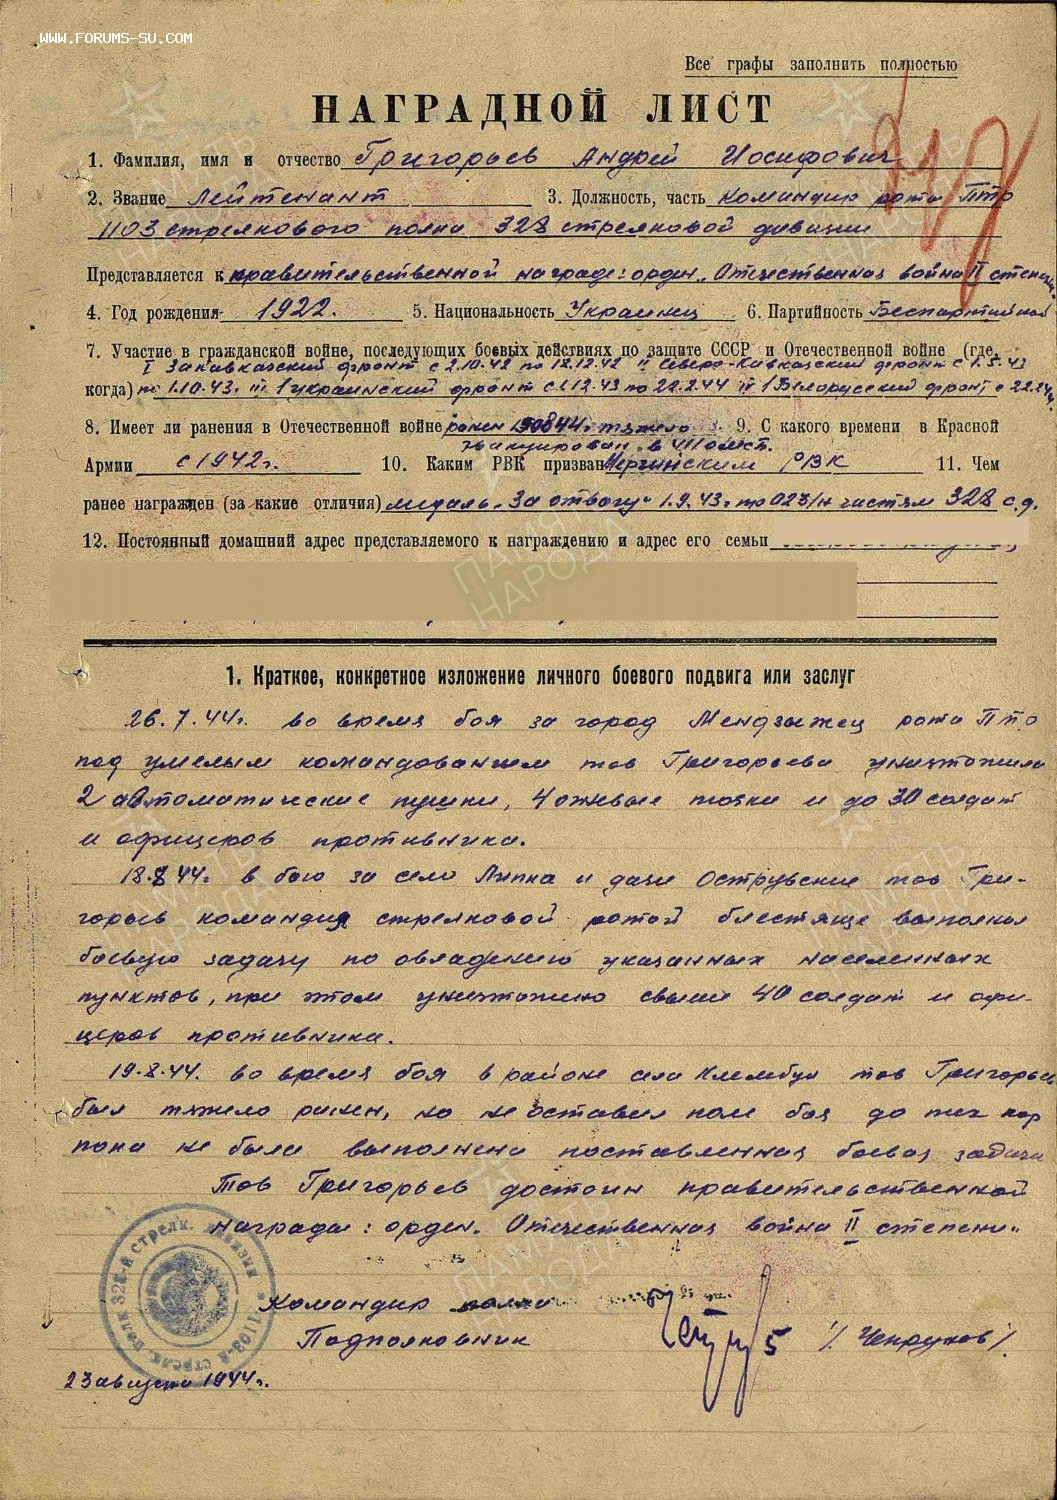 WWW.FORUMS-SU.COM
Все графы заполнить полностью
НАГРАДНОЙ ЛИСТ
1. Фамилия, имя и отчество Григорьев Андрей Иосифович
2. Звание Лейтенант 3. Должность, часть командир роты ПТО
1103 стрелкового полка 328 стрелковой дивизии
Представляется к правительственной награде: орден „Отечественная война II степени
4. Год рождения 1922. 5. Национальность Украинец 6. Партийность Беспартийный
7. Участие в гражданской войне, последующих боевых действиях по защите СССР и Отечественной войне (где,
I Закавказский фронт с 2.10.42 по 12.42 II Северо-Кавказский фронт с 1.5.43
когда) по 1.10.43. III 1 украинский фронт с 1.12.43 по 22.2.44 IV 1 Белорусский фронт с
8. Имеет ли ранения в Отечественной войне ранен 44г. тяжело 9. С какого времени в Красной
эвакуирован в
Армии с 1942г. 10. Каким РВК призван РВК 11. Чем
ранее награжден (за какие отличия) медаль „За отвагу“ 1.9.43г. пр 023/н частям 328 с.д.
12. Постоянный домашний адрес представляемого к награждению и адрес его семьи
1. Краткое, конкретное изложение личного боевого подвига или заслуг
26.7.44г. во время боя за город Мендзыжец рота ПТО
под умелым командованием тов Григорьева уничтожила
2 автоматические пушки, 4 огневые точки и до 30 солдат
и офицеров противника.
18.8.44г. в бою за село Липка и дачи Острувские тов Гри-
горьев командуя стрелковой ротой блестяще выполнил
боевую задачу по овладению указанных населенных
пунктов, при этом уничтожено свыше 40 солдат и офи-
церов противника.
19.8.44. во время боя в районе села Клембув тов Григорьев
был тяжело ранен, но не оставил поле боя до тех пор
пока не была выполнена поставленная боевая задача
Тов Григорьев достоин правительственной
награды: орден „Отечественная война II степени“.
Командир полка
Подполковник /Чепруков/.
23 августа 1944г.
1103-й стрелк. полк 328-й стрелк. дивизии
ПАМЯТЬ НАРОДА